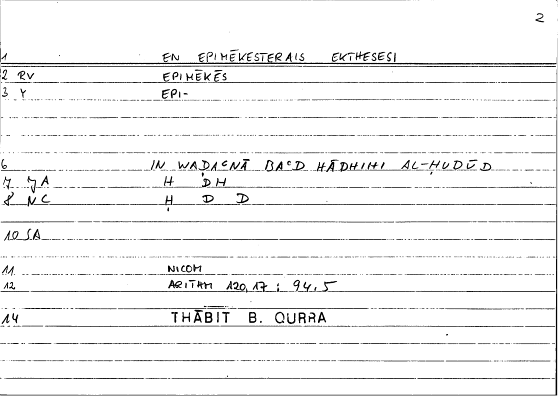 2
1 EN EPIMĒKESTERAIS EKTHESESI
2 RV EPIMĒKĒS
3 Y EPI-
6 IN WAḌAᶜNĀ BAᶜD HĀDHIHI AL-ḤUDŪD
7 JA H DH
8 NC Ḥ D D
10 SA
11 NICOM
12 ARITHM 120,17 : 94,5
14 THĀBIT B. QURRA